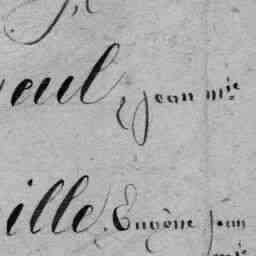 eul, jean m.ie
ille, Eugène jean